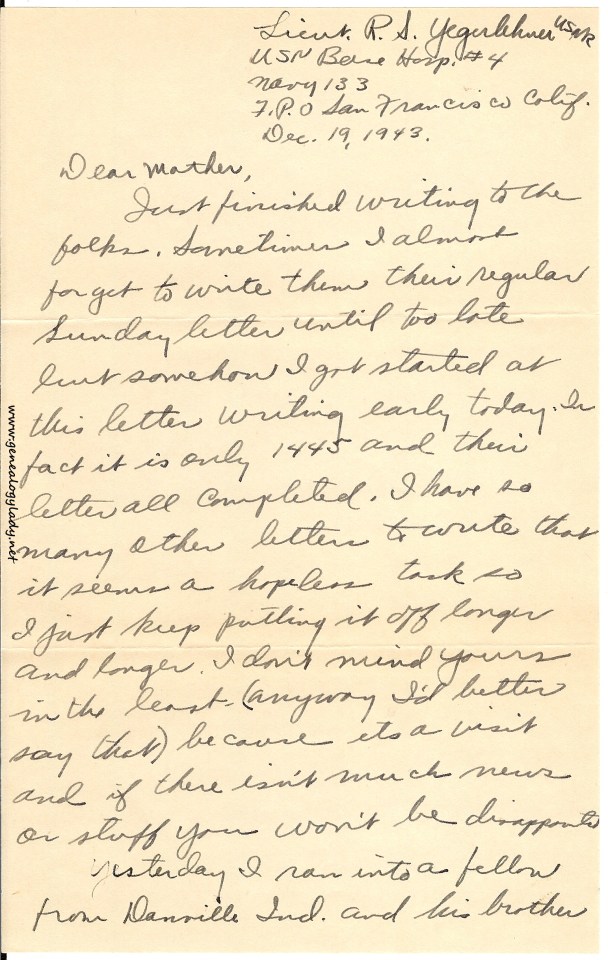 Lieut. R. S. Yegerlehner USNR
USN Base Hosp. #4
Navy 133
F.P.O San Francisco Calif.
Dec. 19, 1943.
Dear Mother,
Just finished writing to the
folks. Sometimes I almost
forget to write them their regular
Sunday letter until too late
but somehow I got started at
this letter writing early today. In
fact it is only 1445 and their
letter all completed. I have so
many other letters to write that
it seems a hopeless task so
I just keep putting it off longer
and longer. I don't mind yours
in the least (anyway I'd better
say that) because its a visit
and if there isn't much news
or stuff you won't be disappointed
Yesterday I ran into a fellow
from Danville Ind. and his brother
www.genealogylady.net